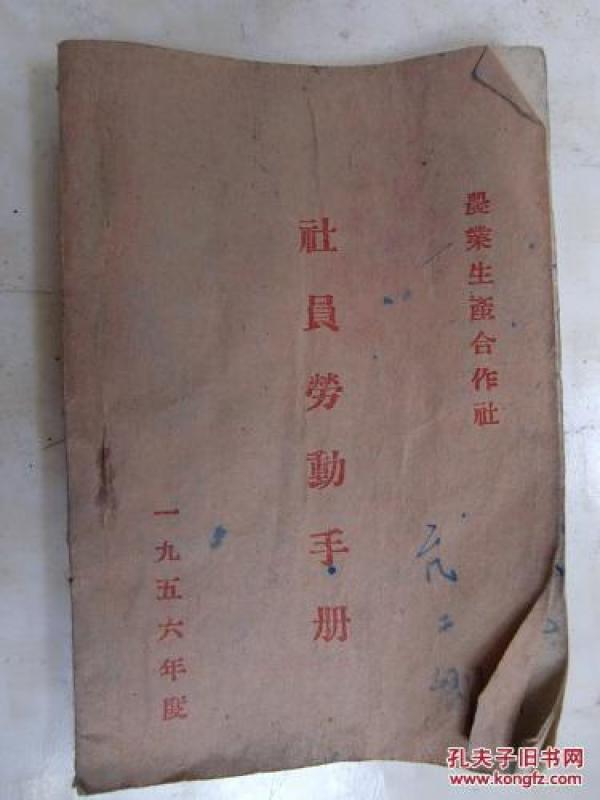 農業生產合作社
社員勞動手册
一九五六年度
孔夫子旧书网
www.kongfz.com